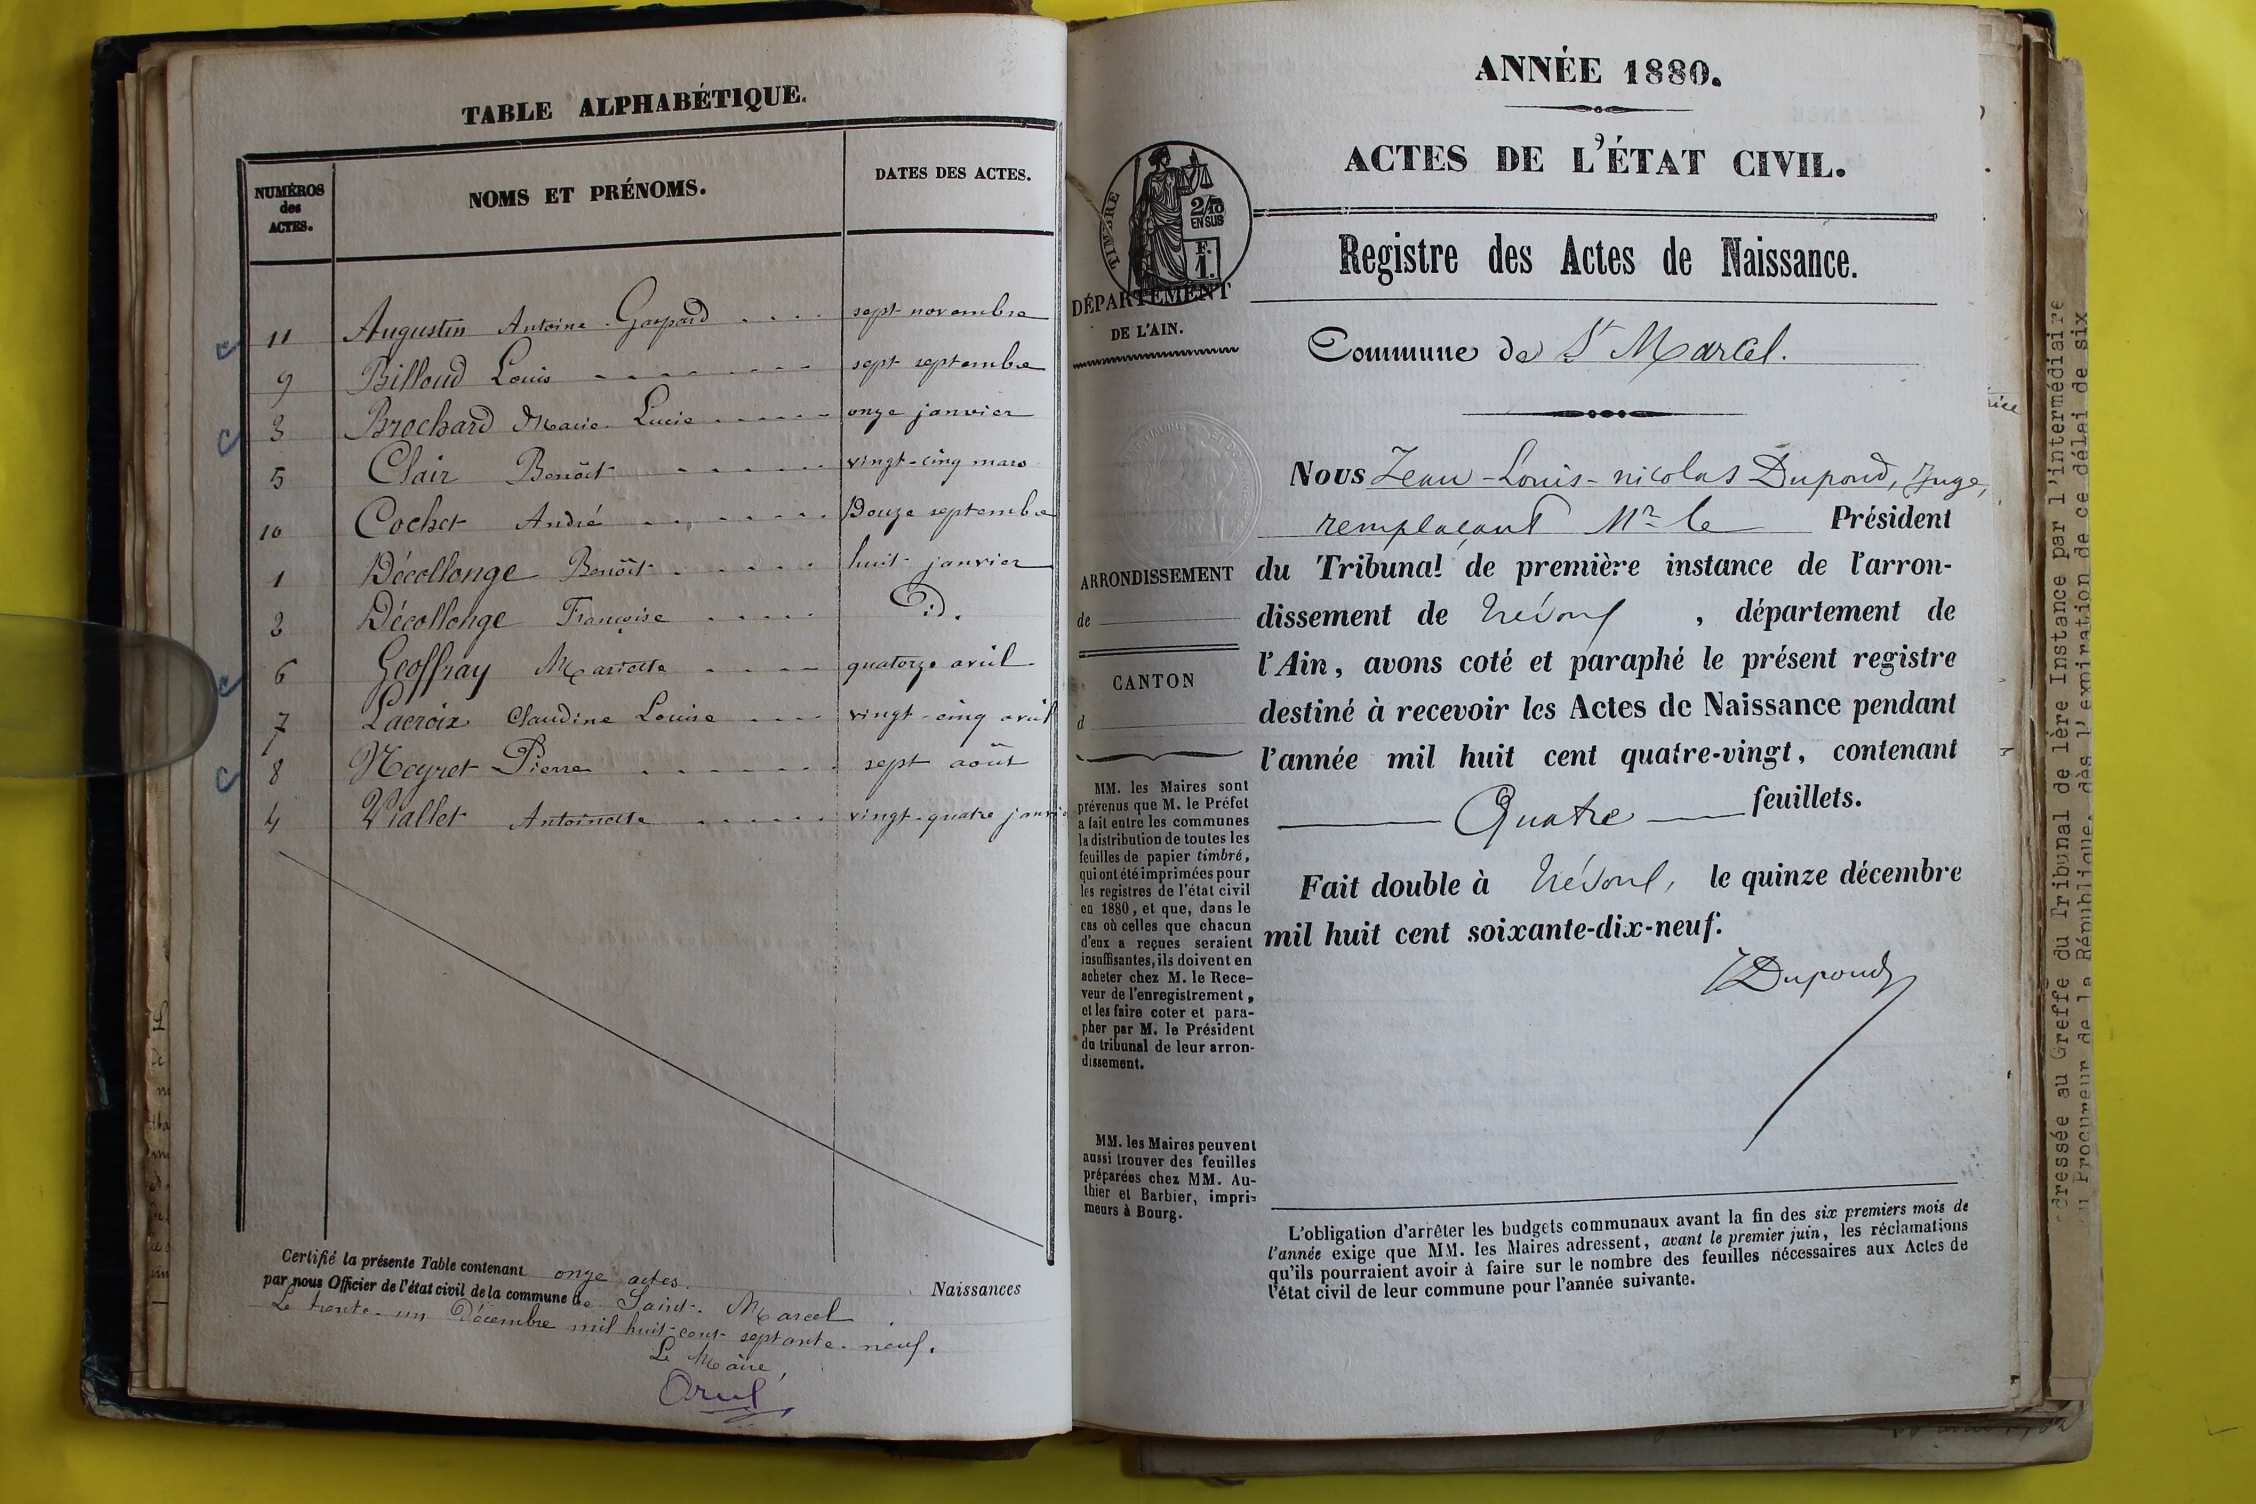 TABLE ALPHABÉTIQUE.
NUMÉROS des ACTES. NOMS ET PRÉNOMS. DATES DES ACTES.
11 Augustin Antoine Gaspard sept novembre
9 Billoud Louis sept septembre
3 Brochard Marie Lucie onze janvier
5 Clair Benoît vingt-cinq mars
10 Cochet André Douze septembre
1 Décollonge Benoît huit janvier
2 Décollonge Françoise id.
6 Geoffray Mariette quatorze avril
7 Lacroix Claudine Louise vingt-cinq avril
8 Neyret Pierre sept août
4 Viallet Antoinette vingt-quatre janvier
Certifié la présente Table contenant onze actes. Naissances
par nous Officier de l'état civil de la commune de Saint-Marcel
Le trente-un Décembre mil huit-cent-septante-neuf.
Le Maire,
ANNÉE 1880.
ACTES DE L'ÉTAT CIVIL.
TIMBRE
2/10
EN SUS
F.
1.
DÉPARTEMENT
DE L'AIN.
Registre des Actes de Naissance.
Commune de St Marcel.
Nous Jean-Louis-nicolas Dupond, Juge,
remplaçant Mr le Président
du Tribunal de première instance de l'arron-
dissement de Trévoux, département de
l'Ain, avons coté et paraphé le présent registre
destiné à recevoir les Actes de Naissance pendant
l'année mil huit cent quatre-vingt, contenant
Quatre feuillets.
Fait double à Trévoux, le quinze décembre
mil huit cent soixante-dix-neuf.
Dupond
ARRONDISSEMENT
de
CANTON
d
MM. les Maires sont
prévenus que M. le Préfet
a fait entre les communes
la distribution de toutes les
feuilles de papier timbré,
qui ont été imprimées pour
les registres de l'état civil
en 1880, et que, dans le
cas où celles que chacun
d'eux a reçues seraient
insuffisantes, ils doivent en
acheter chez M. le Rece-
veur de l'enregistrement,
et les faire coter et para-
pher par M. le Président
du tribunal de leur arron-
dissement.
MM. les Maires peuvent
aussi trouver des feuilles
préparées chez MM. Au-
thier et Barbier, impri-
meurs à Bourg.
L'obligation d'arrêter les budgets communaux avant la fin des six premiers mois de
l'année exige que MM. les Maires adressent, avant le premier juin, les réclamations
qu'ils pourraient avoir à faire sur le nombre des feuilles nécessaires aux Actes de
l'état civil de leur commune pour l'année suivante.
dressée au Greffe du Tribunal de 1ère Instance par l'intermédiaire
du Procureur de la République, dès l'expiration de ce délai de six